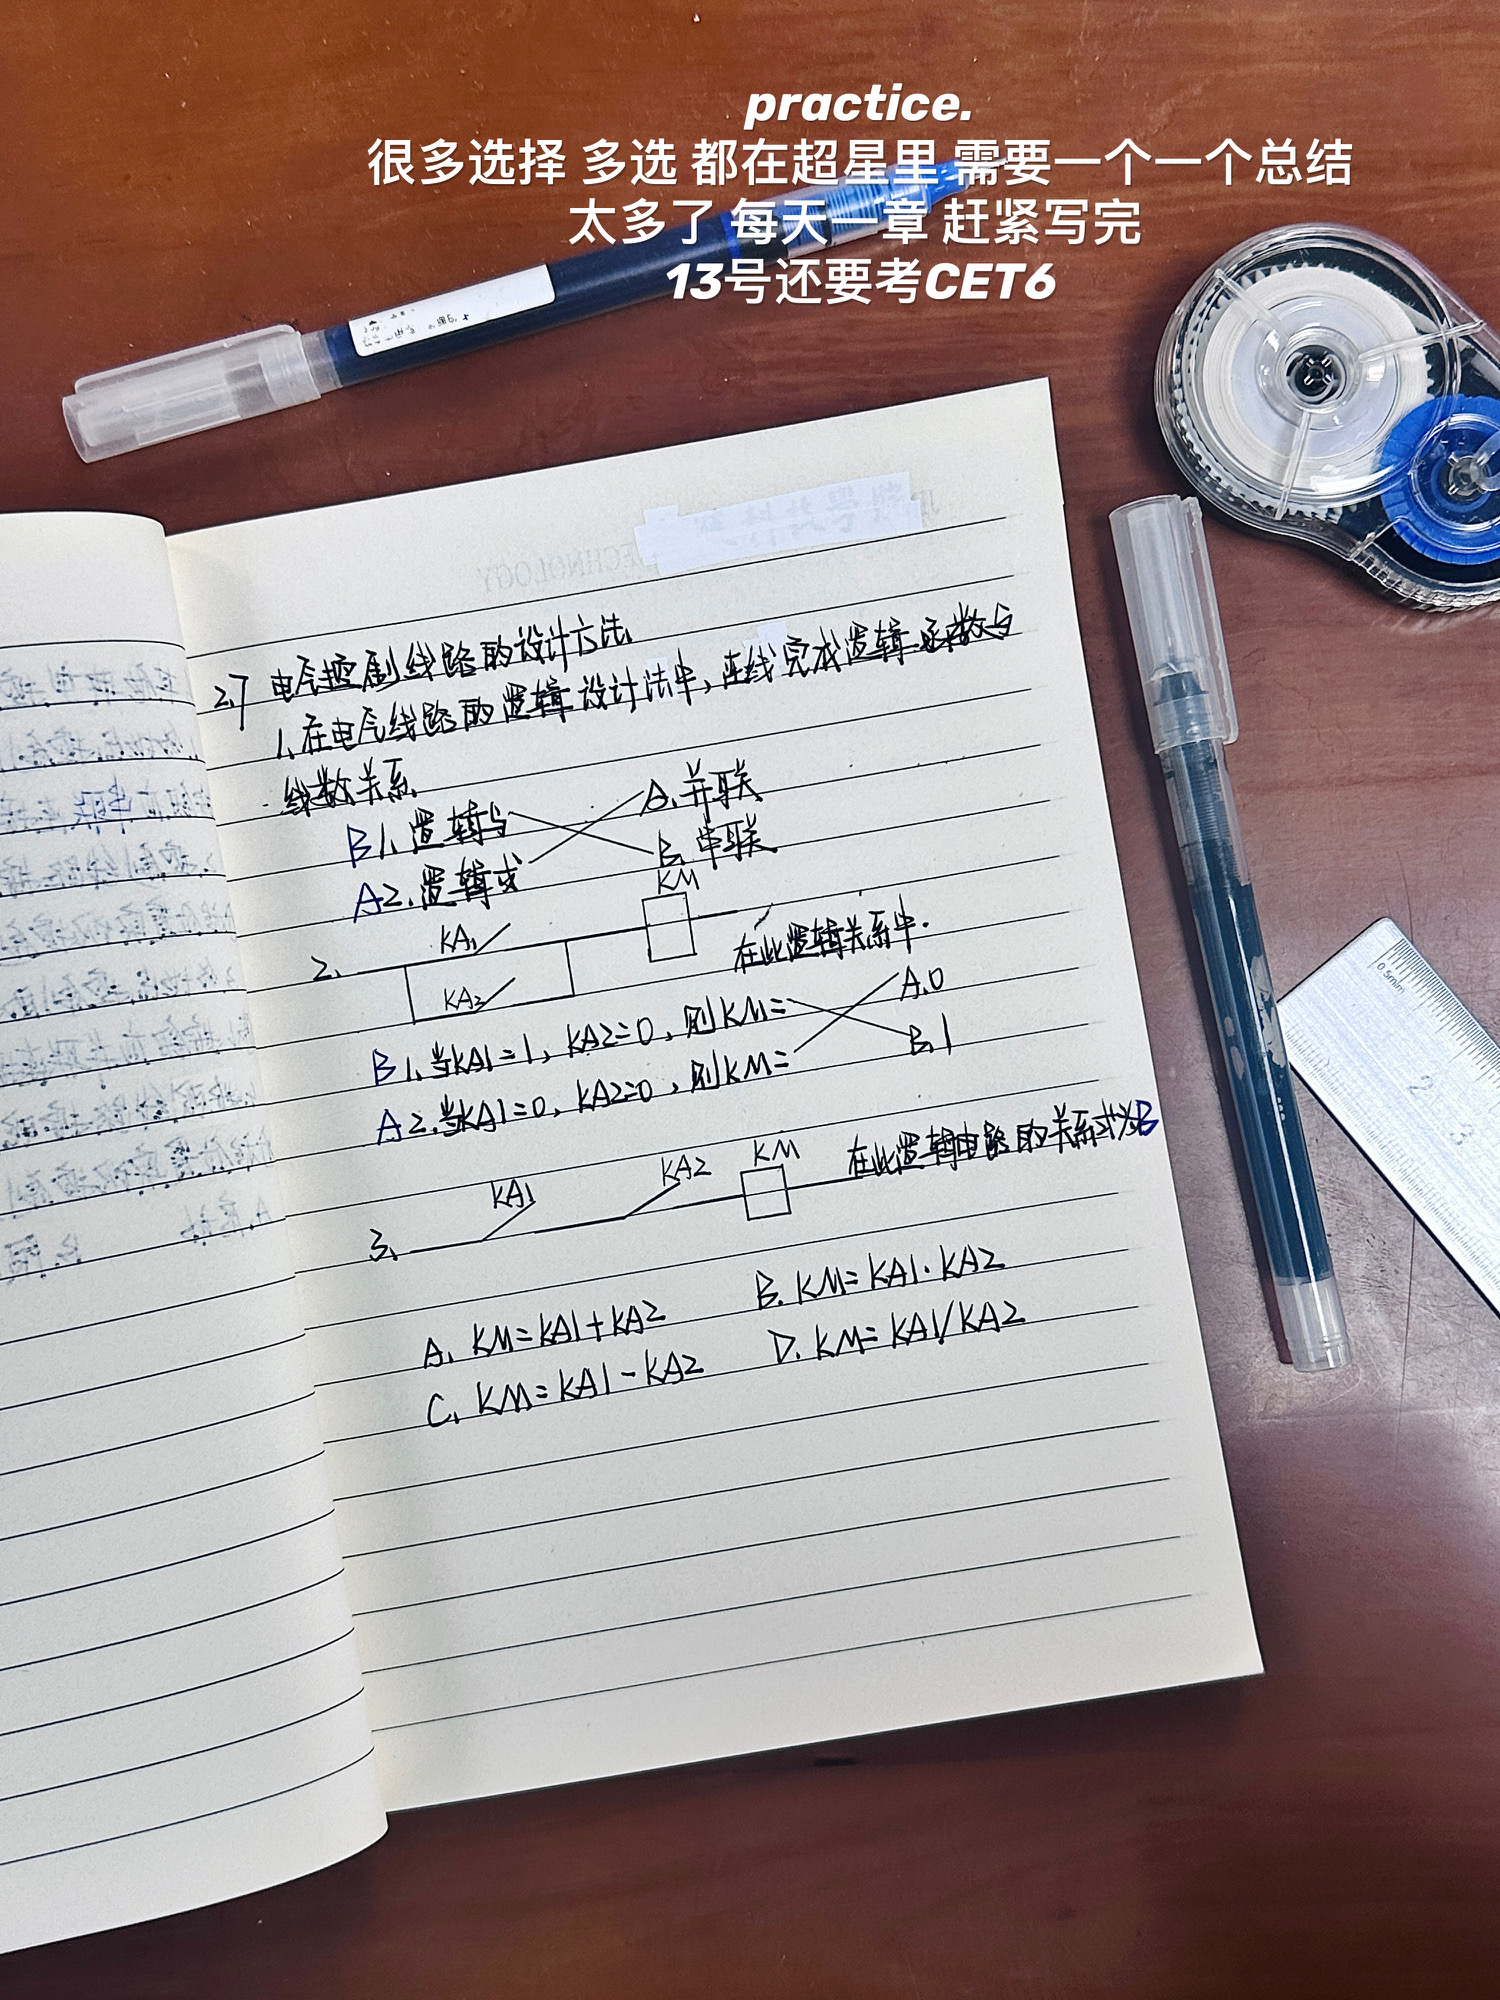 practice.
很多选择 多选 都在超星里 需要一个一个总结
太多了 每天一章 赶紧写完
13号还要考CET6
2.7 电气控制线路的设计方法
1、在电气线路的逻辑设计法中，连线完成逻辑函数与
线数关系
B 1、逻辑与 A、并联
A 2、逻辑或 B、串联
2、 KA1 KA2 KM 在此逻辑关系中.
B 1、当KA1=1，KA2=0，则KM= A、0
A 2、当KA1=0，KA2=0，则KM= B、1
3、 KA1 KA2 KM 在此逻辑电路的关系式为B
A、KM=KA1+KA2 B、KM=KA1·KA2
C、KM=KA1-KA2 D、KM=KA1/KA2
0.5mm
2
3